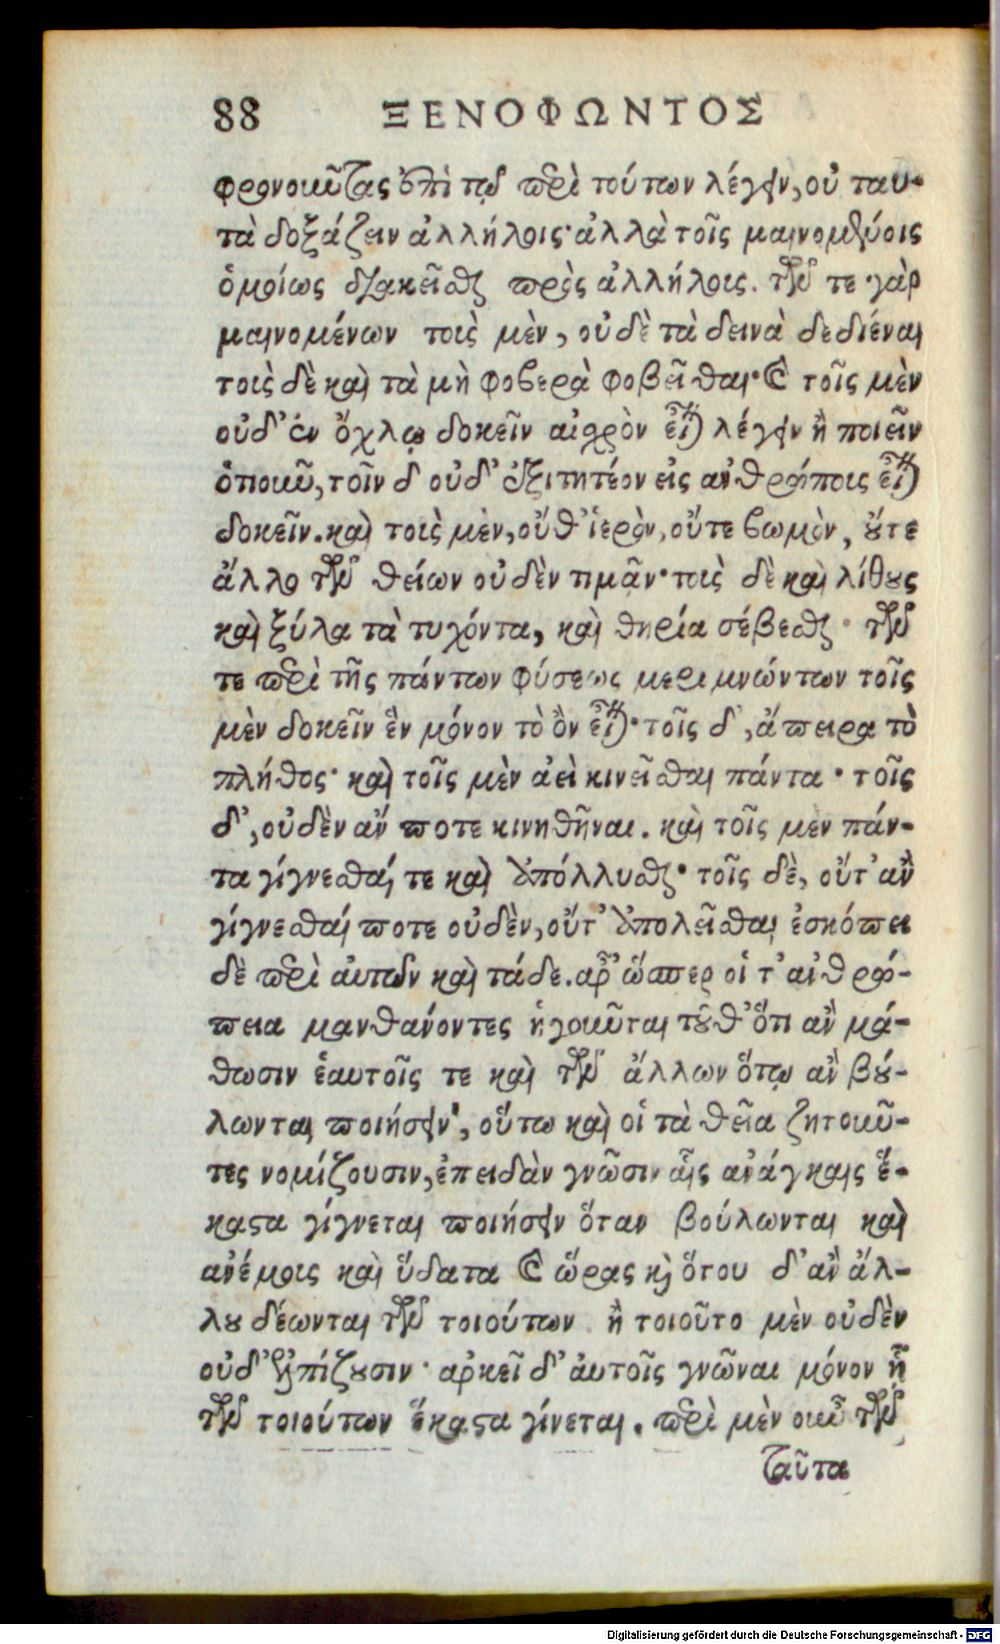 88 ΞΕΝΟΦΩΝΤΟΣ
φρονοῦντας ἐπὶ τῷ περὶ τούτων λέγειν, οὐ ταυ-
τὰ δοξάζειν ἀλλήλοις· ἀλλὰ τοῖς μαινομένοις
ὁμοίως διακεῖσθαι πρὸς ἀλλήλοις. τῶν τε γὰρ
μαινομένων τοὺς μὲν, οὐδὲ τὰ δεινὰ δεδιέναι
τοὺς δὲ καὶ τὰ μὴ φοβερὰ φοβεῖσθαι· καὶ τοῖς μὲν
οὐδ' ἐν ὄχλῳ δοκεῖν αἰσχρὸν εἶναι λέγειν ἢ ποιεῖν
ὁποιοῦν, τοῖν δ οὐδ' ἐξιτητέον εἰς ἀνθρώποις εἶναι
δοκεῖν. καὶ τοὺς μὲν, οὔθ' ἱερὸν, οὔτε βωμὸν, οὔτε
ἄλλο τῶν θείων οὐδὲν τιμᾷν· τοὺς δὲ καὶ λίθους
καὶ ξύλα τὰ τυχόντα, καὶ θηρία σέβεσθαι· τῶν
τε περὶ τῆς πάντων φύσεως μεριμνώντων τοῖς
μὲν δοκεῖν ἓν μόνον τὸ ὂν εἶναι· τοῖς δ', ἄπειρα τὸ
πλῆθος· καὶ τοῖς μὲν ἀεὶ κινεῖσθαι πάντα· τοῖς
δ', οὐδὲν ἄν ποτε κινηθῆναι. καὶ τοῖς μὲν πάν-
τα γίγνεσθαί τε καὶ ἀπόλλυσθαι· τοῖς δὲ, οὔτ' ἂν
γίγνεσθαί ποτε οὐδὲν, οὔτ' ἀπολεῖσθαι ἐσκόπει
δὲ περὶ αὐτῶν καὶ τάδε. ἆρ' ὥσπερ οἱ τ' ἀνθρώ-
πεια μανθάνοντες ἡγοῦνται τοῦθ' ὅτι ἂν μά-
θωσιν ἑαυτοῖς τε καὶ τῶν ἄλλων ὅτῳ ἂν βού-
λωνται ποιήσειν, οὕτω καὶ οἱ τὰ θεῖα ζητοῦν-
τες νομίζουσιν, ἐπειδὰν γνῶσιν αἷς ἀνάγκαις ἕ-
καστα γίγνεται ποιήσειν ὅταν βούλωνται καὶ
ἀνέμοις καὶ ὕδατα καὶ ὥρας καὶ ὅτου δ' ἂν ἄλ-
λου δέωνται τῶν τοιούτων ἢ τοιοῦτο μὲν οὐδὲν
οὐδ' ἐλπίζουσιν· ἀρκεῖ δ' αὐτοῖς γνῶναι μόνον ᾗ
τῶν τοιούτων ἕκαστα γίνεται. περὶ μὲν οὖν τῶν
ταῦτα
Digitalisierung gefördert durch die Deutsche Forschungsgemeinschaft - DFG